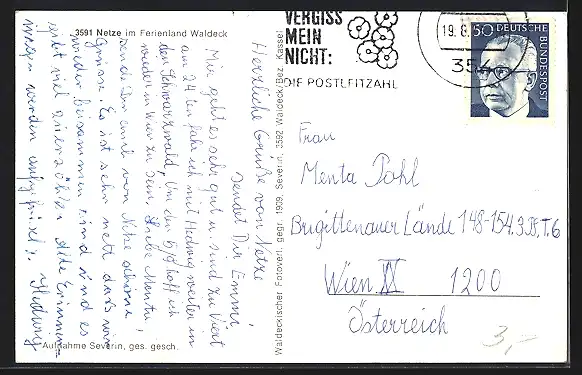 3591 Netze im Ferienland Waldeck
Herzliche Grüße von Netze
sendet Dir Emmi,
Mir geht es sehr gut u. sind zu Viert
am 24 ten fahr ich mit Hedwig weiter in
den Schwarzwald, bin den hoff ich
wieder in Wien zu sein, Liebe Menta!
sende Dir auch von Netze schöne
Grüsse. Es ist sehr nett daß wir
wieder beisammen sind und es
gibt viel zu erzählen. Alte Erinner-
ungen werden aufgefrischt. Hedwig
Aufnahme Severin, ges. gesch.
Waldeckischer Fotoverl. gegr. 1909, Severin, 3592 Waldeck/Bez. Kassel
VERGISS
MEIN
NICHT:
DIE POSTLEITZAHL
19.8.
354
50 DEUTSCHE
BUNDESPOST
Frau
Menta Pohl
Brigittenauer Lände 148-154.3.
Wien XX 1200
Österreich
3,-